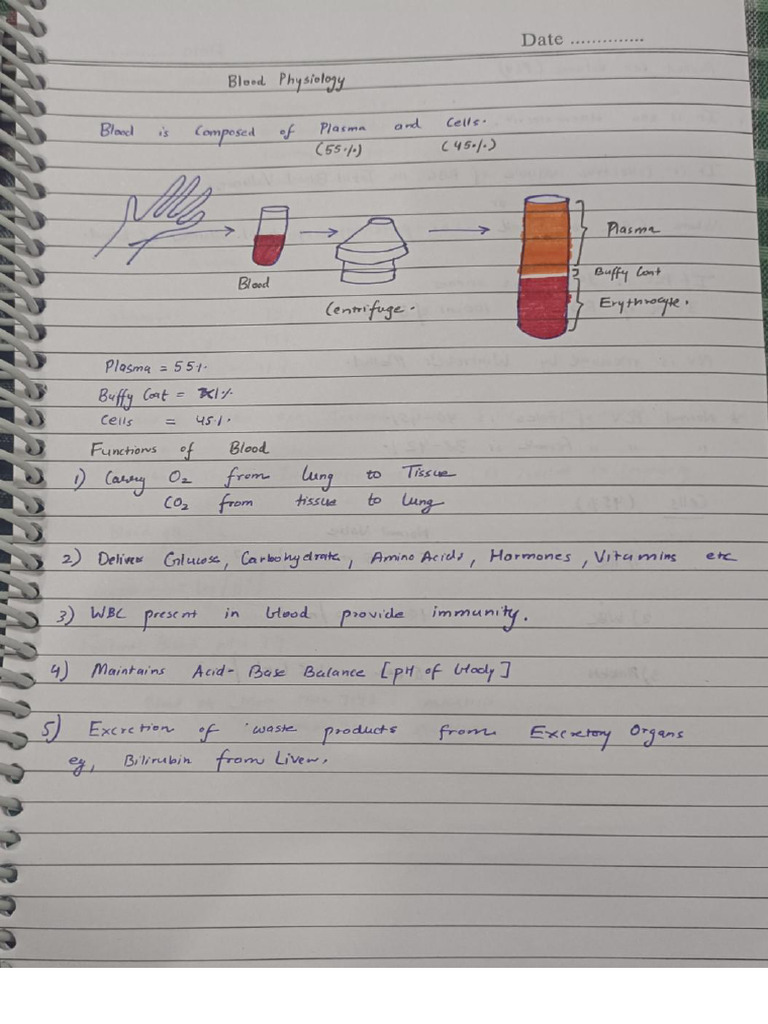 Date ..............
Blood Physiology
Blood is Composed of Plasma and Cells.
(55%) (45%)
Plasma
Buffy Coat
Erythrocyte.
Blood
Centrifuge.
Plasma = 55%
Buffy Coat = <1%
Cells = 45%.
Functions of Blood
1) Carry O2 from lung to Tissue
CO2 from tissue to lung
2) Deliver Glucose, Carbohydrate, Amino Acids, Hormones, Vitamins etc
3) WBC present in blood provide immunity.
4) Maintains Acid-Base Balance [pH of blody]
5) Excretion of waste products from Excretory Organs
eg, Bilirubin from Liver.